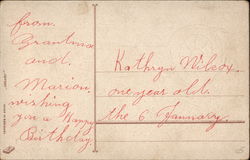 from
Grandma
and.
Marion.
wishing
you a happy
Birthday
Kathryn Wilcox.
one year old.
the 6 January.